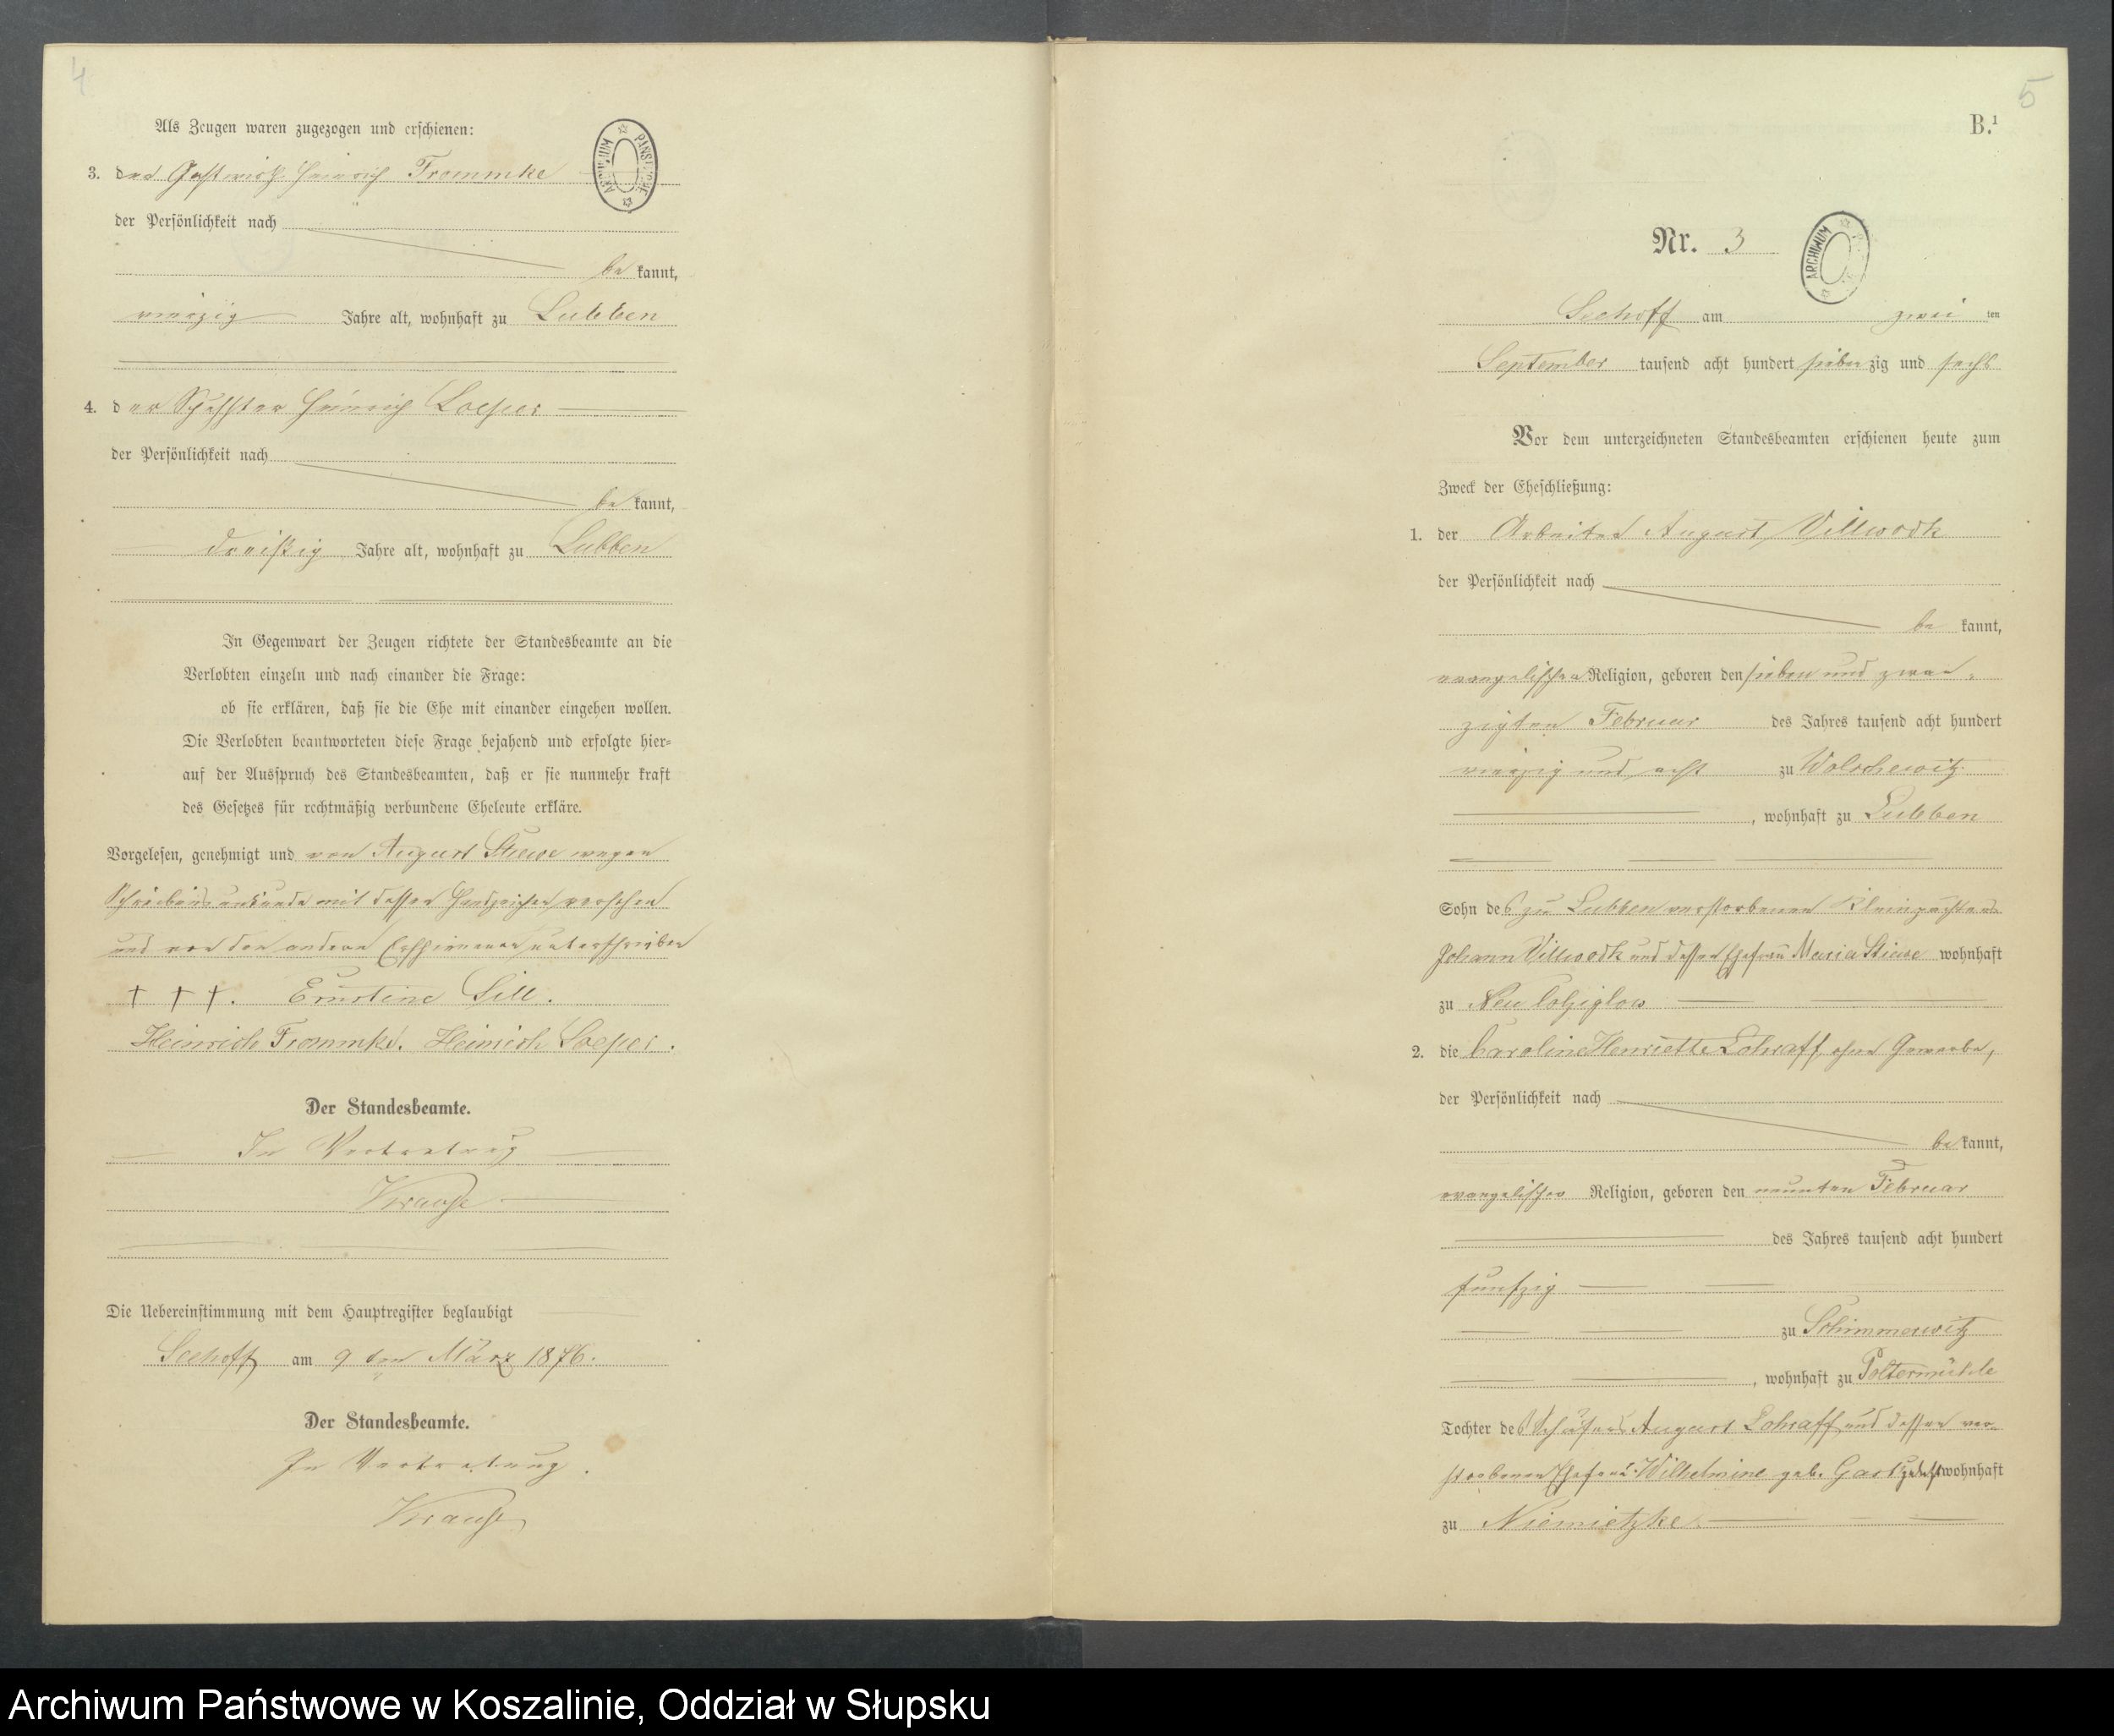 4
Als Zeugen waren zugezogen und erschienen:
3. der Gastwirth Heinrich Frommke
ARCHIWUM PAŃSTWOWE
der Persönlichkeit nach
be kannt,
vierzig Jahre alt, wohnhaft zu Lubben
4. der Heinrich Loeper
der Persönlichkeit nach
be kannt,
dreißig Jahre alt, wohnhaft zu Lubben
In Gegenwart der Zeugen richtete der Standesbeamte an die
Verlobten einzeln und nach einander die Frage:
ob sie erklären, daß sie die Ehe mit einander eingehen wollen.
Die Verlobten beantworteten diese Frage bejahend und erfolgte hier=
auf der Ausspruch des Standesbeamten, daß er sie nunmehr kraft
des Gesetzes für rechtmäßig verbundene Eheleute erkläre.
Vorgelesen, genehmigt und von August Stiewe wegen
Schreibensunkunde mit dessen Handzeichen versehen
und von den andern Erschienenen unterschrieben
† † †. Ernstine Sill.
Heinrich Frommke. Heinrich Loeper.
Der Standesbeamte.
In Vertretung
Krause
Die Uebereinstimmung mit dem Hauptregister beglaubigt
Seehoff am 9 ten März 1876.
Der Standesbeamte.
In Vertretung.
Krause
5
B.¹
Nr. 3
ARCHIWUM
Seehoff am zwei ten
September tausend acht hundert sieben zig und sechs
Vor dem unterzeichneten Standesbeamten erschienen heute zum
Zweck der Eheschließung:
1. der Arbeiter August Villwodk
der Persönlichkeit nach
be kannt,
evangelischer Religion, geboren den sieben und zwan=
zigten Februar des Jahres tausend acht hundert
vierzig und acht zu Wolschewitz
, wohnhaft zu Lubben
Sohn des zu Lubben verstorbenen Kleinpächters
Johann Villwodk und dessen Ehefrau Maria Stiewe wohnhaft
zu Neu
2. die Caroline Henriette Lohraff, ohne Gewerbe,
der Persönlichkeit nach
be kannt,
evangelischer Religion, geboren den neunten Februar
des Jahres tausend acht hundert
fünfzig
zu Schimmerwitz
, wohnhaft zu Poltermühle
Tochter des Schäfers August Lohraff und dessen ver=
storbenen Ehefrau Wilhelmine geb. wohnhaft
zu Niemietzke.
Archiwum Państwowe w Koszalinie, Oddział w Słupsku